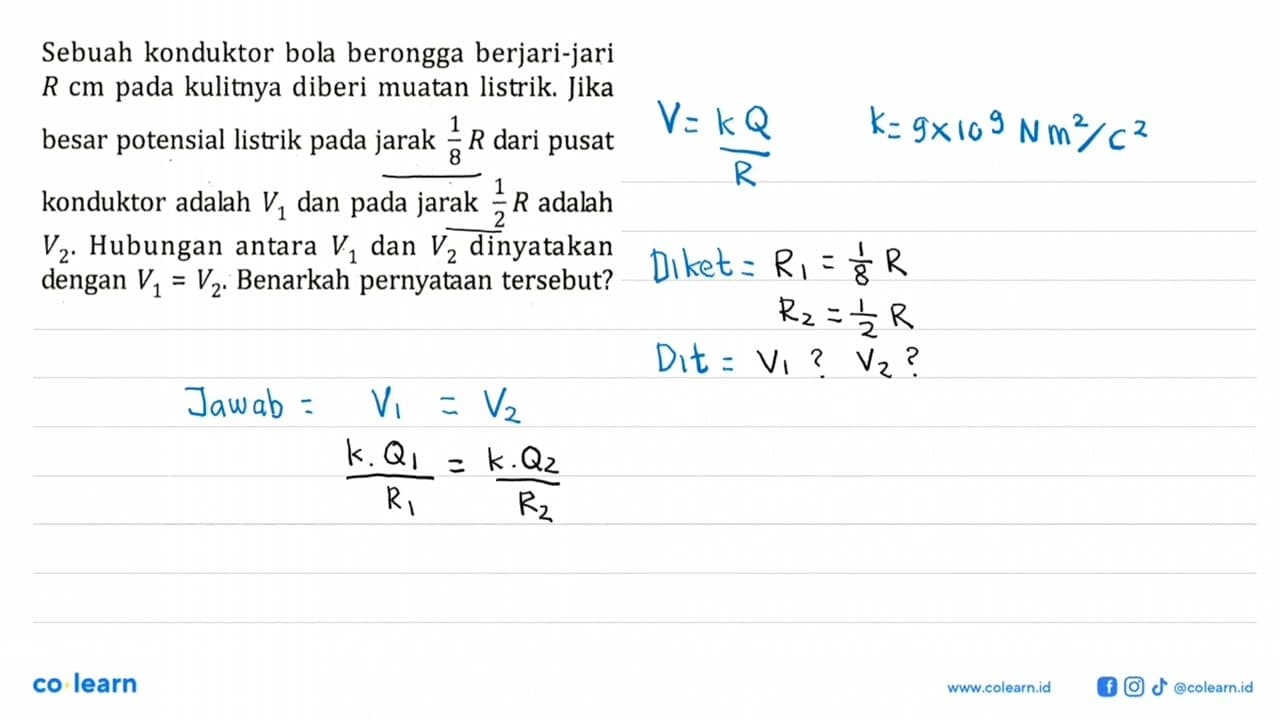 Sebuah konduktor bola berongga berjari-jari
R cm pada kulitnya diberi muatan listrik. Jika
besar potensial listrik pada jarak 1/8 R dari pusat
konduktor adalah V₁ dan pada jarak 1/2 R adalah
V₂. Hubungan antara V₁ dan V₂ dinyatakan
dengan V₁ = V₂. Benarkah pernyataan tersebut?
V = kQ/R
k = 9×10⁹ Nm²/C²
Diket = R₁ = 1/8 R
R₂ = 1/2 R
Dit = V₁ ? V₂ ?
Jawab = V₁ = V₂
k.Q₁/R₁ = k.Q₂/R₂
co learn
www.colearn.id
@colearn.id